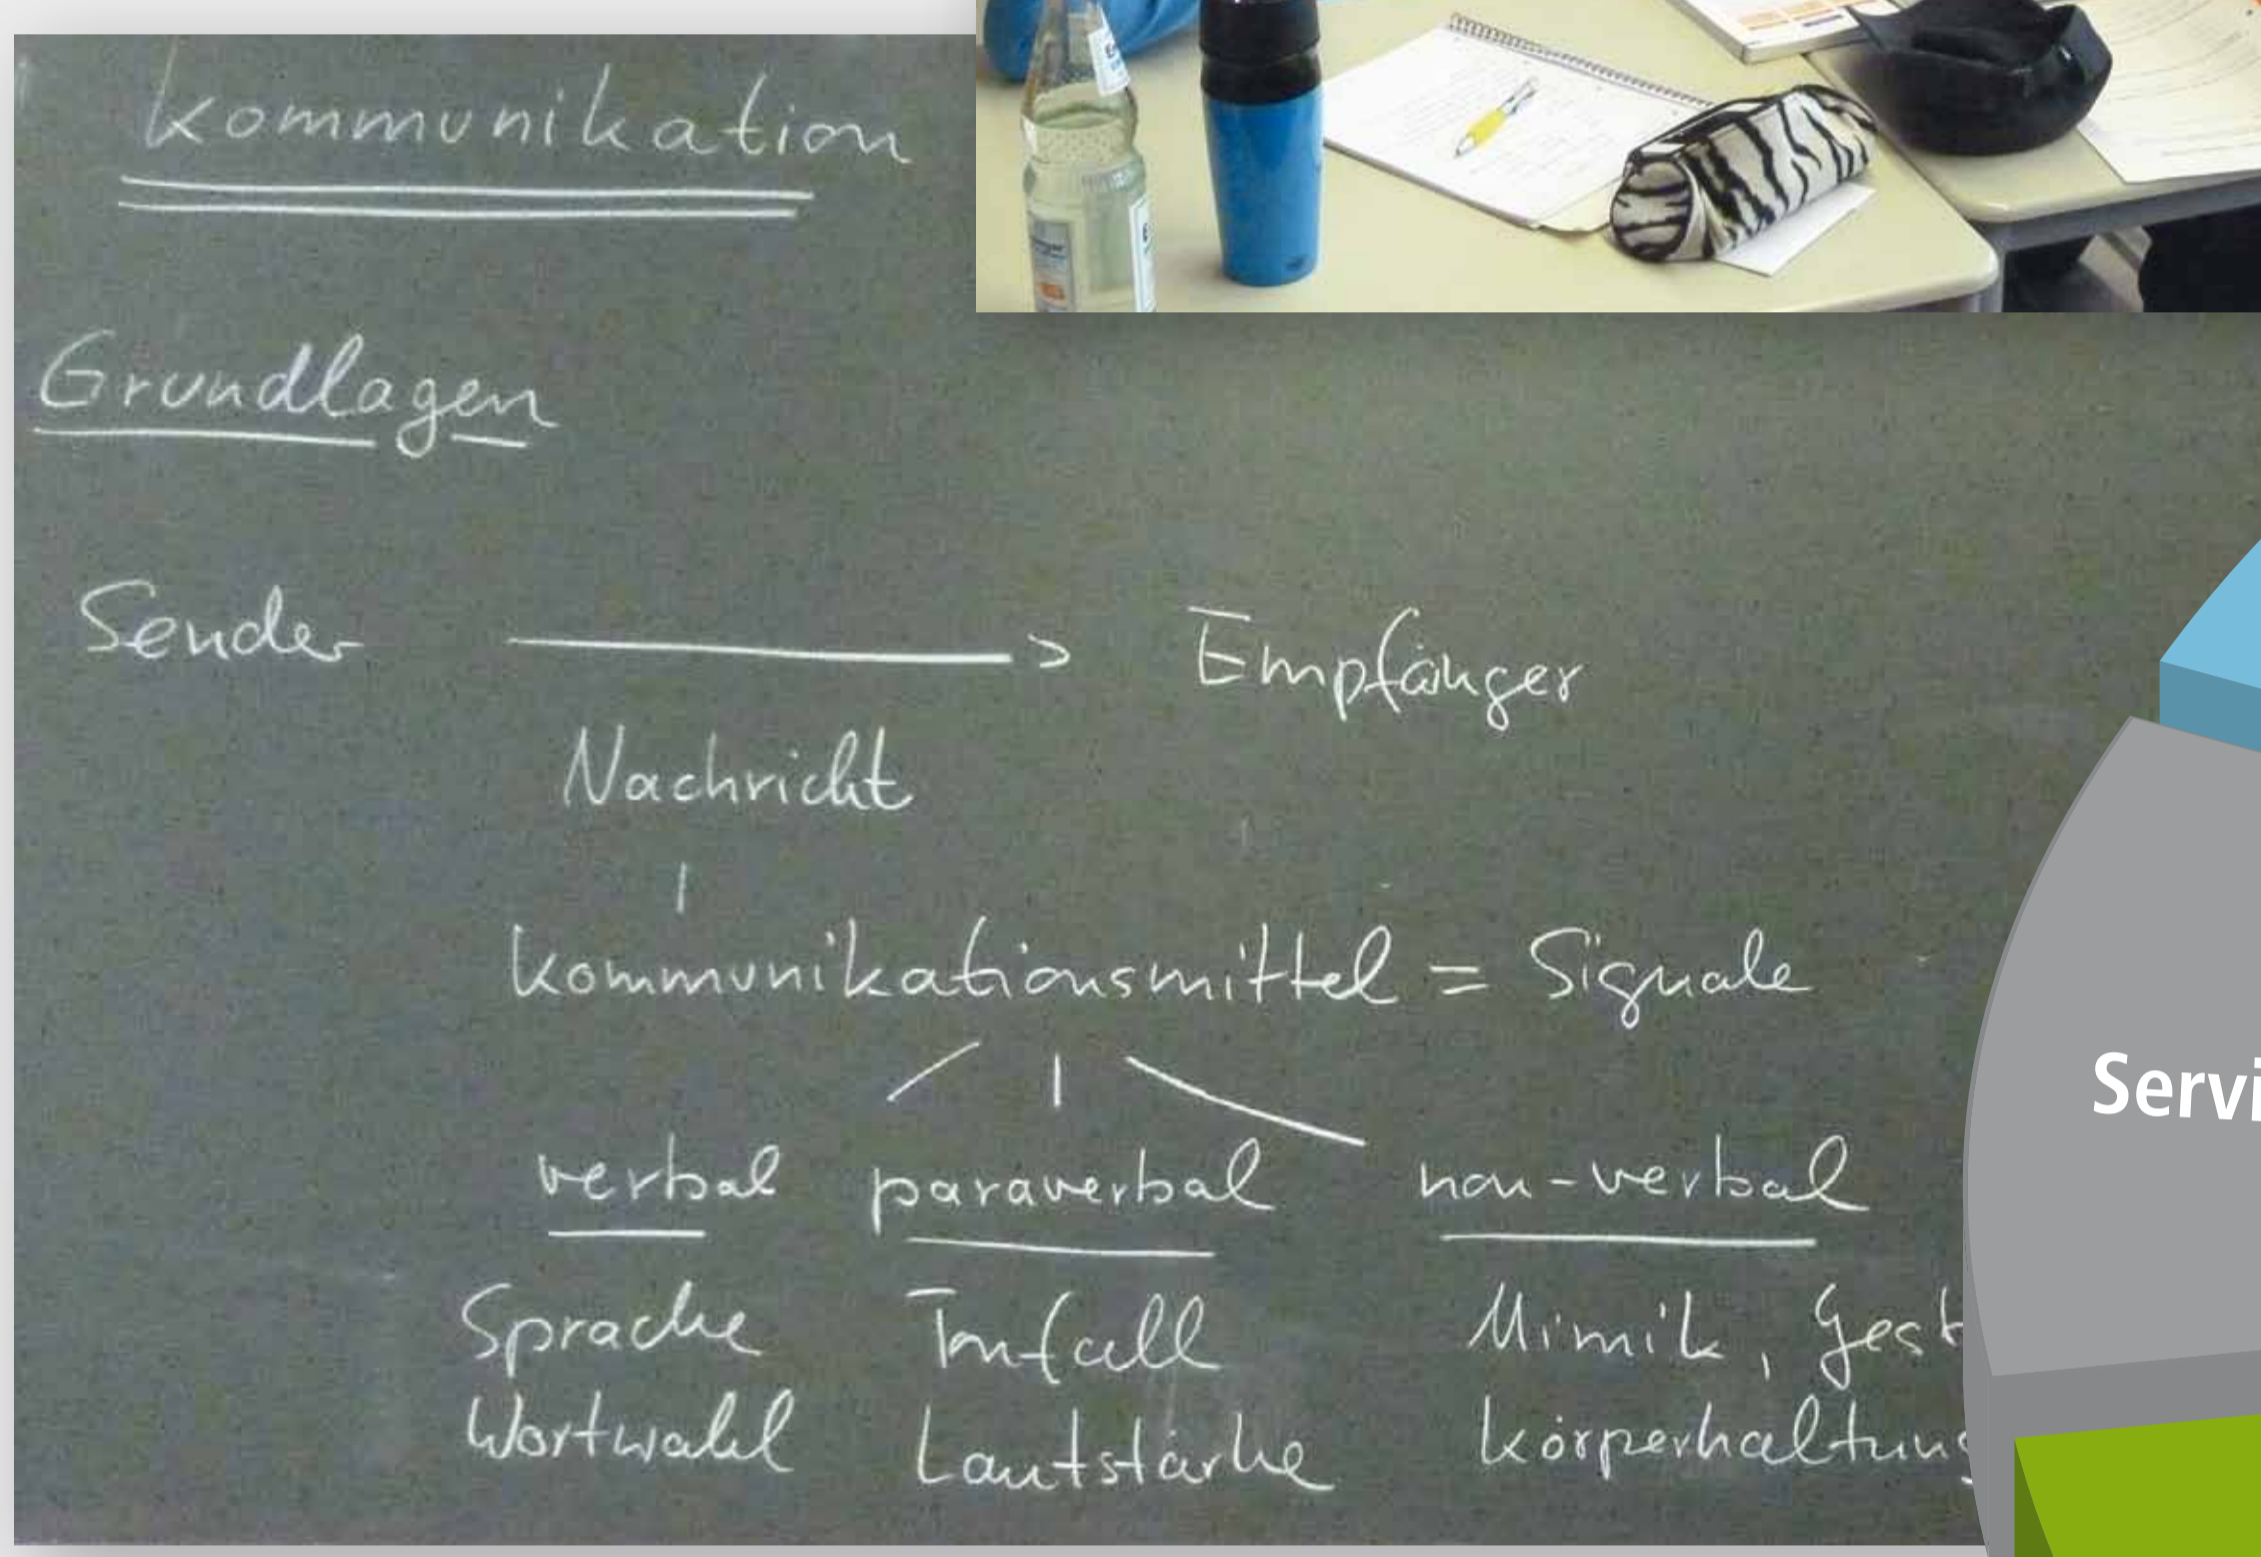 Kommunikation
Grundlagen
Sender → Empfänger
Nachricht
Kommunikationsmittel = Signale
verbal paraverbal non-verbal
Sprache Tonfall Mimik, Gest
Wortwahl Lautstärke Körperhaltung
Servi